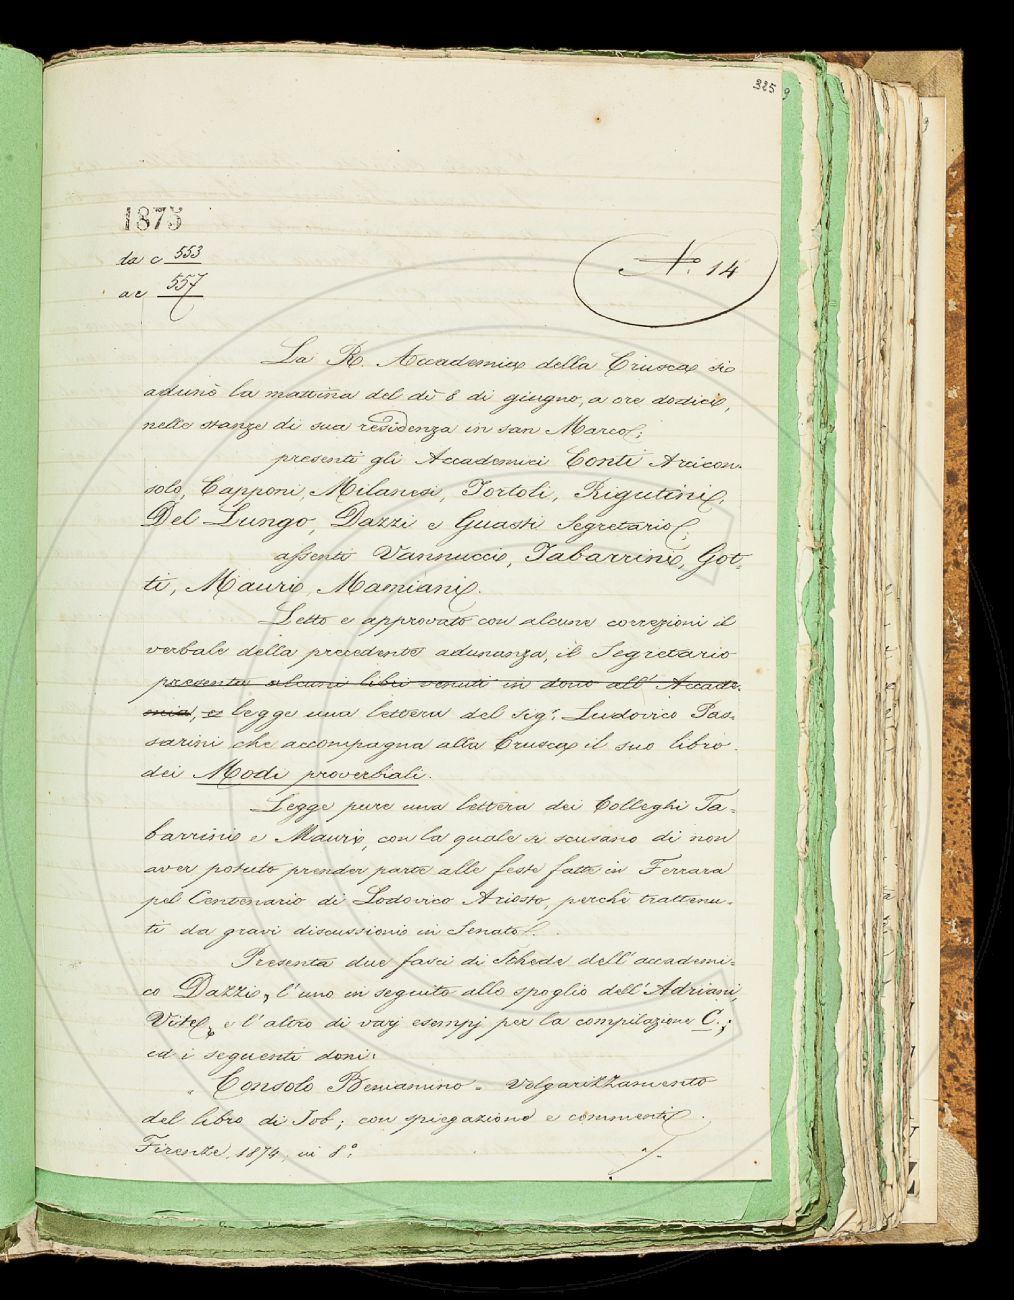 325
9
1875
da c 553
a c 557
N. 14
La R. Accademia della Crusca si
adunò la mattina del dì 8 di giugno, a ore dodici,
nelle stanze di sua residenza in san Marco;
presenti gli Accademici Conti Aricon-
solo, Capponi, Milanesi, Tortoli, Rigutini,
Del Lungo, Dazzi e Guasti Segretario;
assenti Vannucci, Tabarrini, Got-
ti, Mauri, Mamiani.
Letto e approvato con alcune correzioni il
verbale della precedente adunanza, il Segretario
presenta alcuni libri venuti in dono all'Accade-
mia, e legge una lettera del sig.r Ludovico Pas-
sarini che accompagna alla Crusca il suo libro
dei Modi proverbiali.
Legge pure una lettera dei Colleghi Ta-
barrini e Mauri, con la quale si scusano di non
aver potuto prender parte alle feste fatte in Ferrara
pel Centenario di Lodovico Ariosto, perchè trattenu-
ti da gravi discussioni in Senato.
Presenta due fasci di Schede dell'accademi-
co Dazzi, l'uno in seguito allo spoglio dell'Adriani,
Vite, e l'altro di varj esempj per la compilazione C.;
ed i seguenti doni:
" Consolo Beniamino - Volgarizzamento
del libro di Job; con spiegazione e commenti.
Firenze, 1874, in 8°;
./.